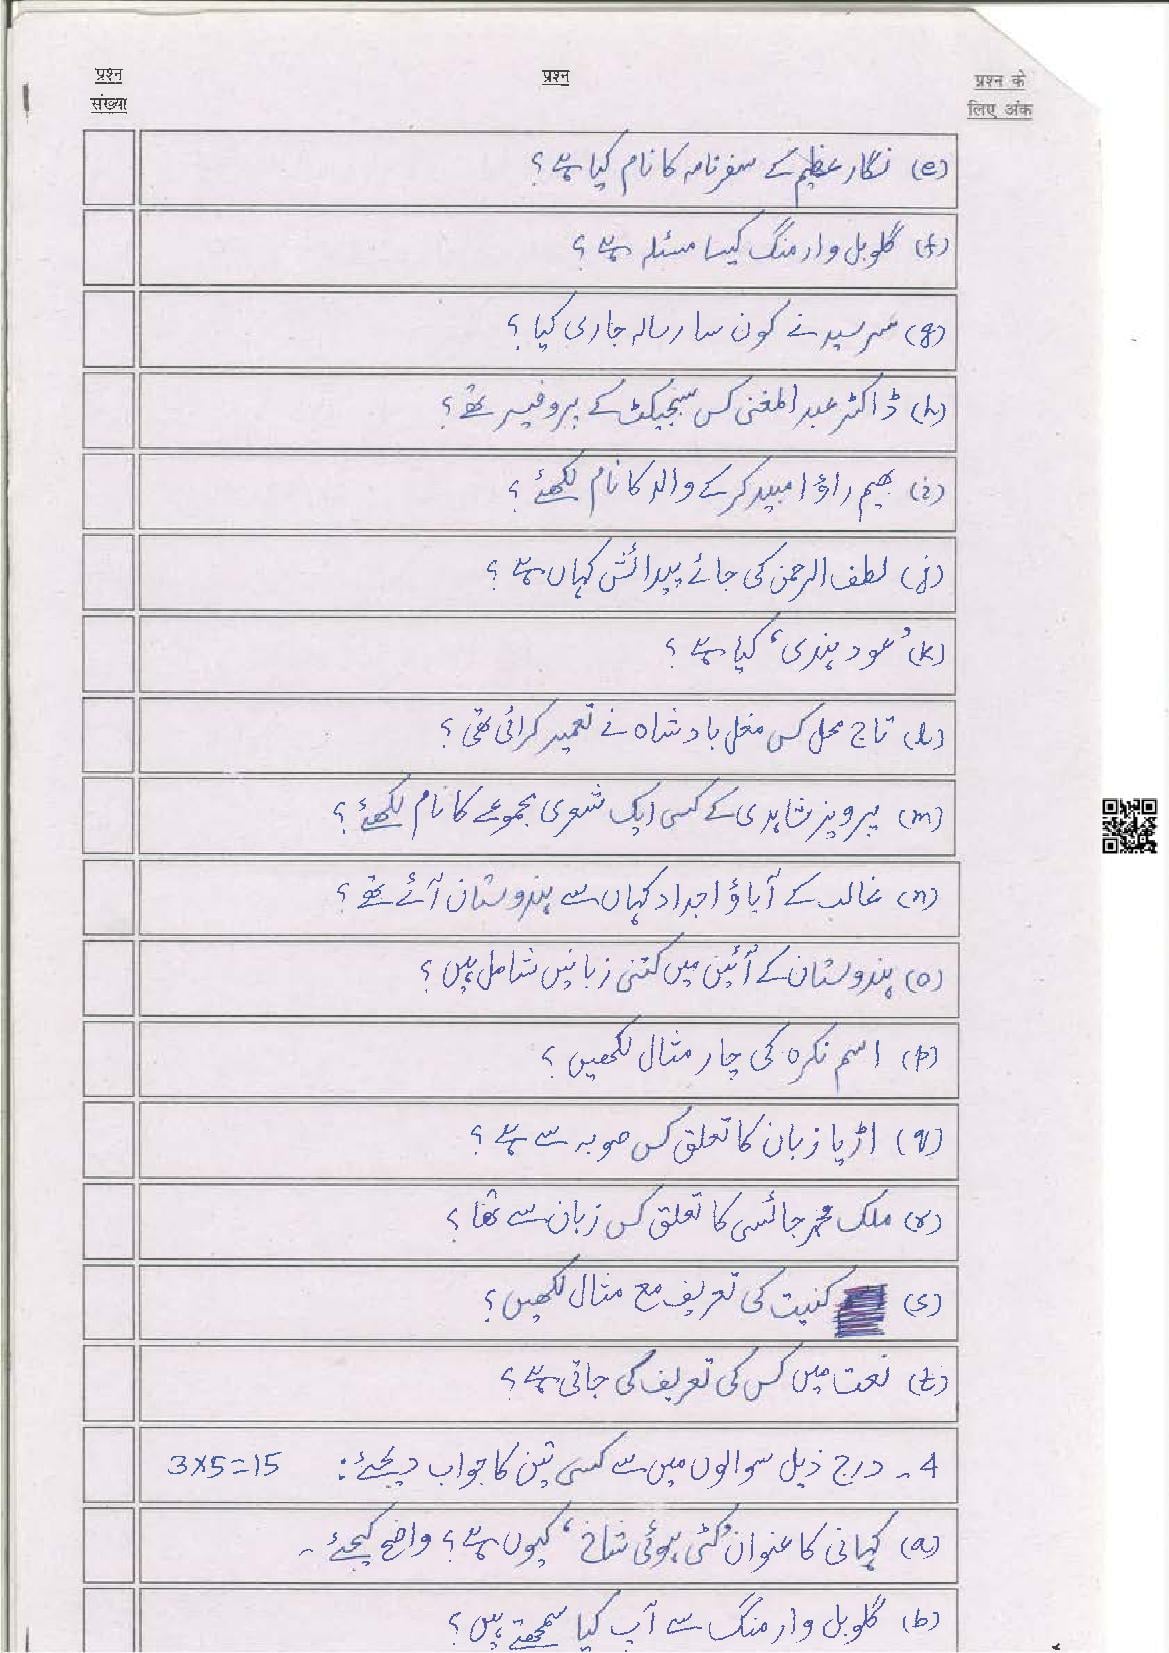 प्रश्न संख्या
प्रश्न
प्रश्न के लिए अंक
(e) نگار عظیم کے سفر نامہ کا نام کیا ہے؟
(f) گلوبل وارمنگ کیسا مسئلہ ہے؟
(g) سرسید نے کون سا رسالہ جاری کیا؟
(h) ڈاکٹر عبد المغنی کس سبجیکٹ کے پروفیسر تھے؟
(i) بھیم راؤ امبیدکر کے والد کا نام لکھئے؟
(j) لطف الرحمن کی جائے پیدائش کہاں ہے؟
(k) ’عود ہندی‘ کیا ہے؟
(l) تاج محل کس مغل بادشاہ نے تعمیر کرائی تھی؟
(m) پرویز شاہدی کے کسی ایک شعری مجموعے کا نام لکھئے؟
(n) غالب کے آباؤ اجداد کہاں سے ہندوستان آئے تھے؟
(o) ہندوستان کے آئین میں کتنی زبانیں شامل ہیں؟
(p) اسم نکرہ کی چار مثال لکھیں؟
(q) اڑیا زبان کا تعلق کس صوبہ سے ہے؟
(r) ملک محمد جائسی کا تعلق کس زبان سے تھا؟
(s) کنیت کی تعریف مع مثال لکھیں؟
(t) نعت میں کس کی تعریف کی جاتی ہے؟
4۔ درج ذیل سوالوں میں سے کسی تین کا جواب دیجئے: 3x5=15
(a) کہانی کا عنوان ’کٹی ہوئی شاخ‘ کیوں ہے؟ واضح کیجئے۔
(b) گلوبل وارمنگ سے آپ کیا سمجھتے ہیں؟